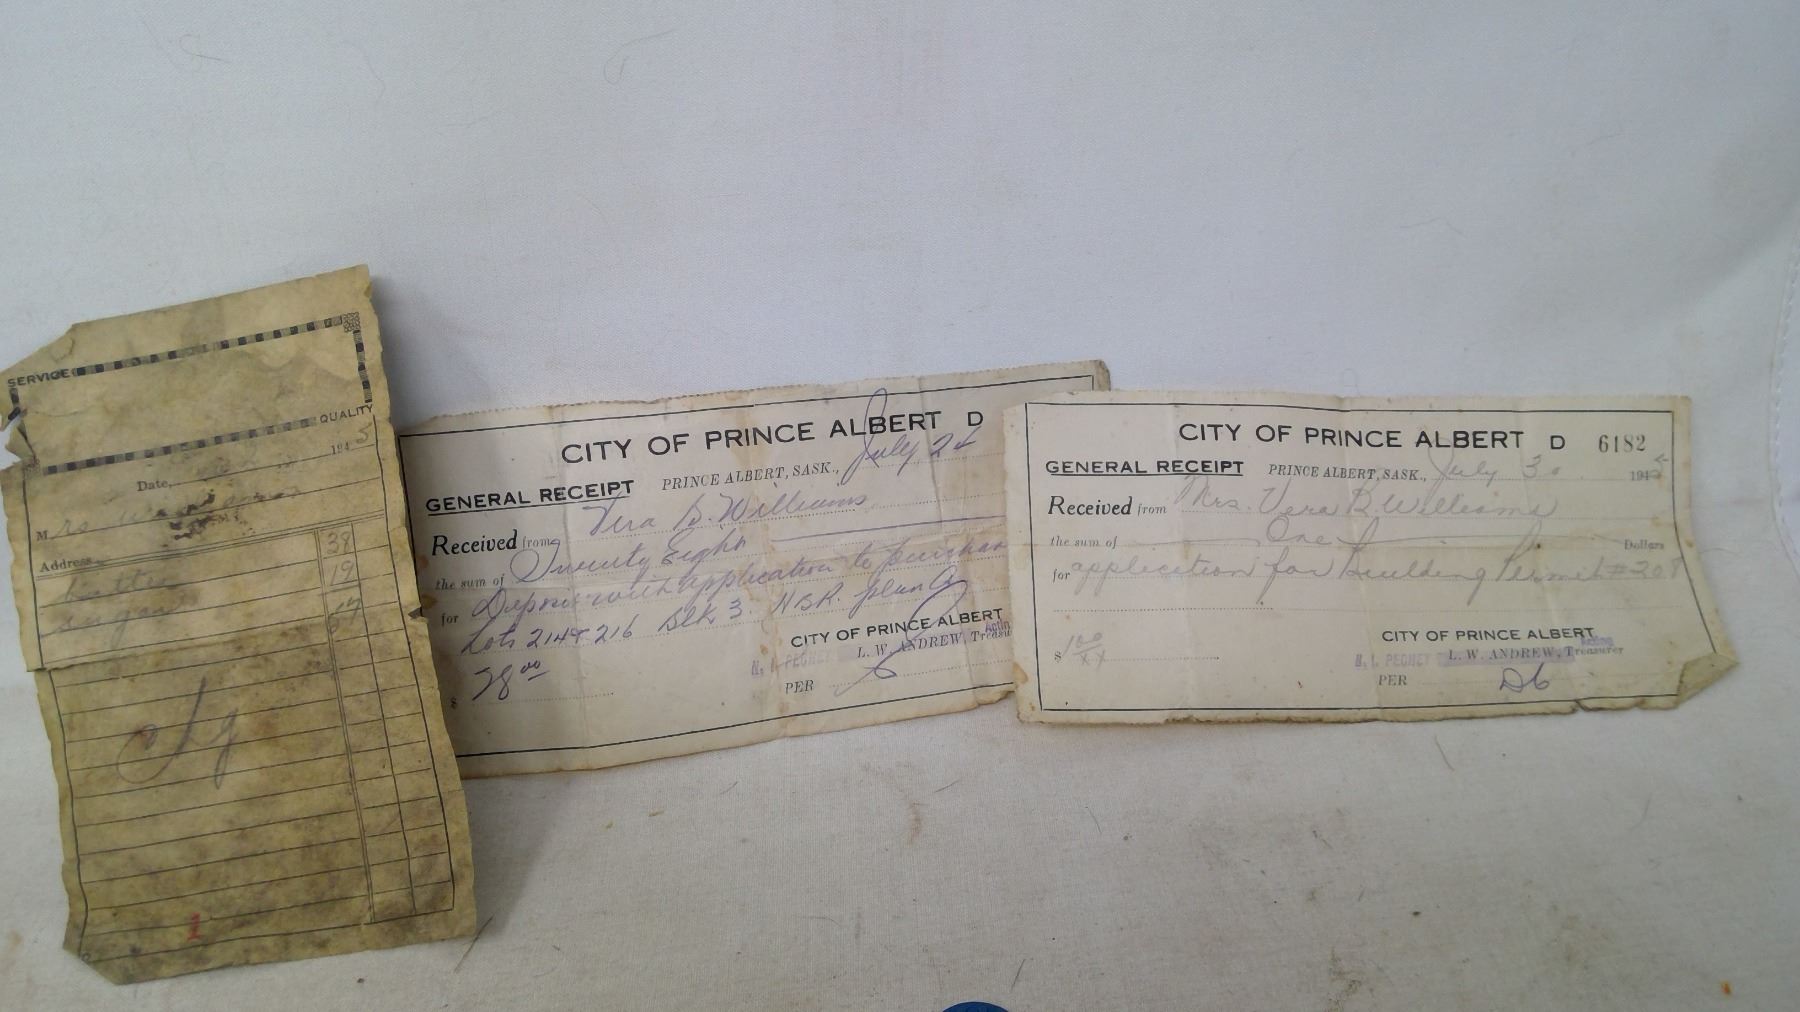 SERVICE
QUALITY
194 5
Date,
M rs
Address
butter 38
sugar 19
57
1
CITY OF PRINCE ALBERT D
GENERAL RECEIPT PRINCE ALBERT, SASK., July 24
Received from Vera B. Williams
the sum of Twenty Eight
for Deposit with application to purchase
Lots 214 & 216 Blk 3. H.B.R. plan
CITY OF PRINCE ALBERT
Acting
N. I. PECHEY L. W. ANDREW, Treasu
$ 28 00
PER
CITY OF PRINCE ALBERT D 6182
GENERAL RECEIPT PRINCE ALBERT, SASK., July 30 194
Received from Mrs. Vera B. Williams
the sum of One Dollars
for application for Building Permit # 208
CITY OF PRINCE ALBERT
Acting
$ 1 00/xx N. I. PECHEY L. W. ANDREW, Treasurer
PER